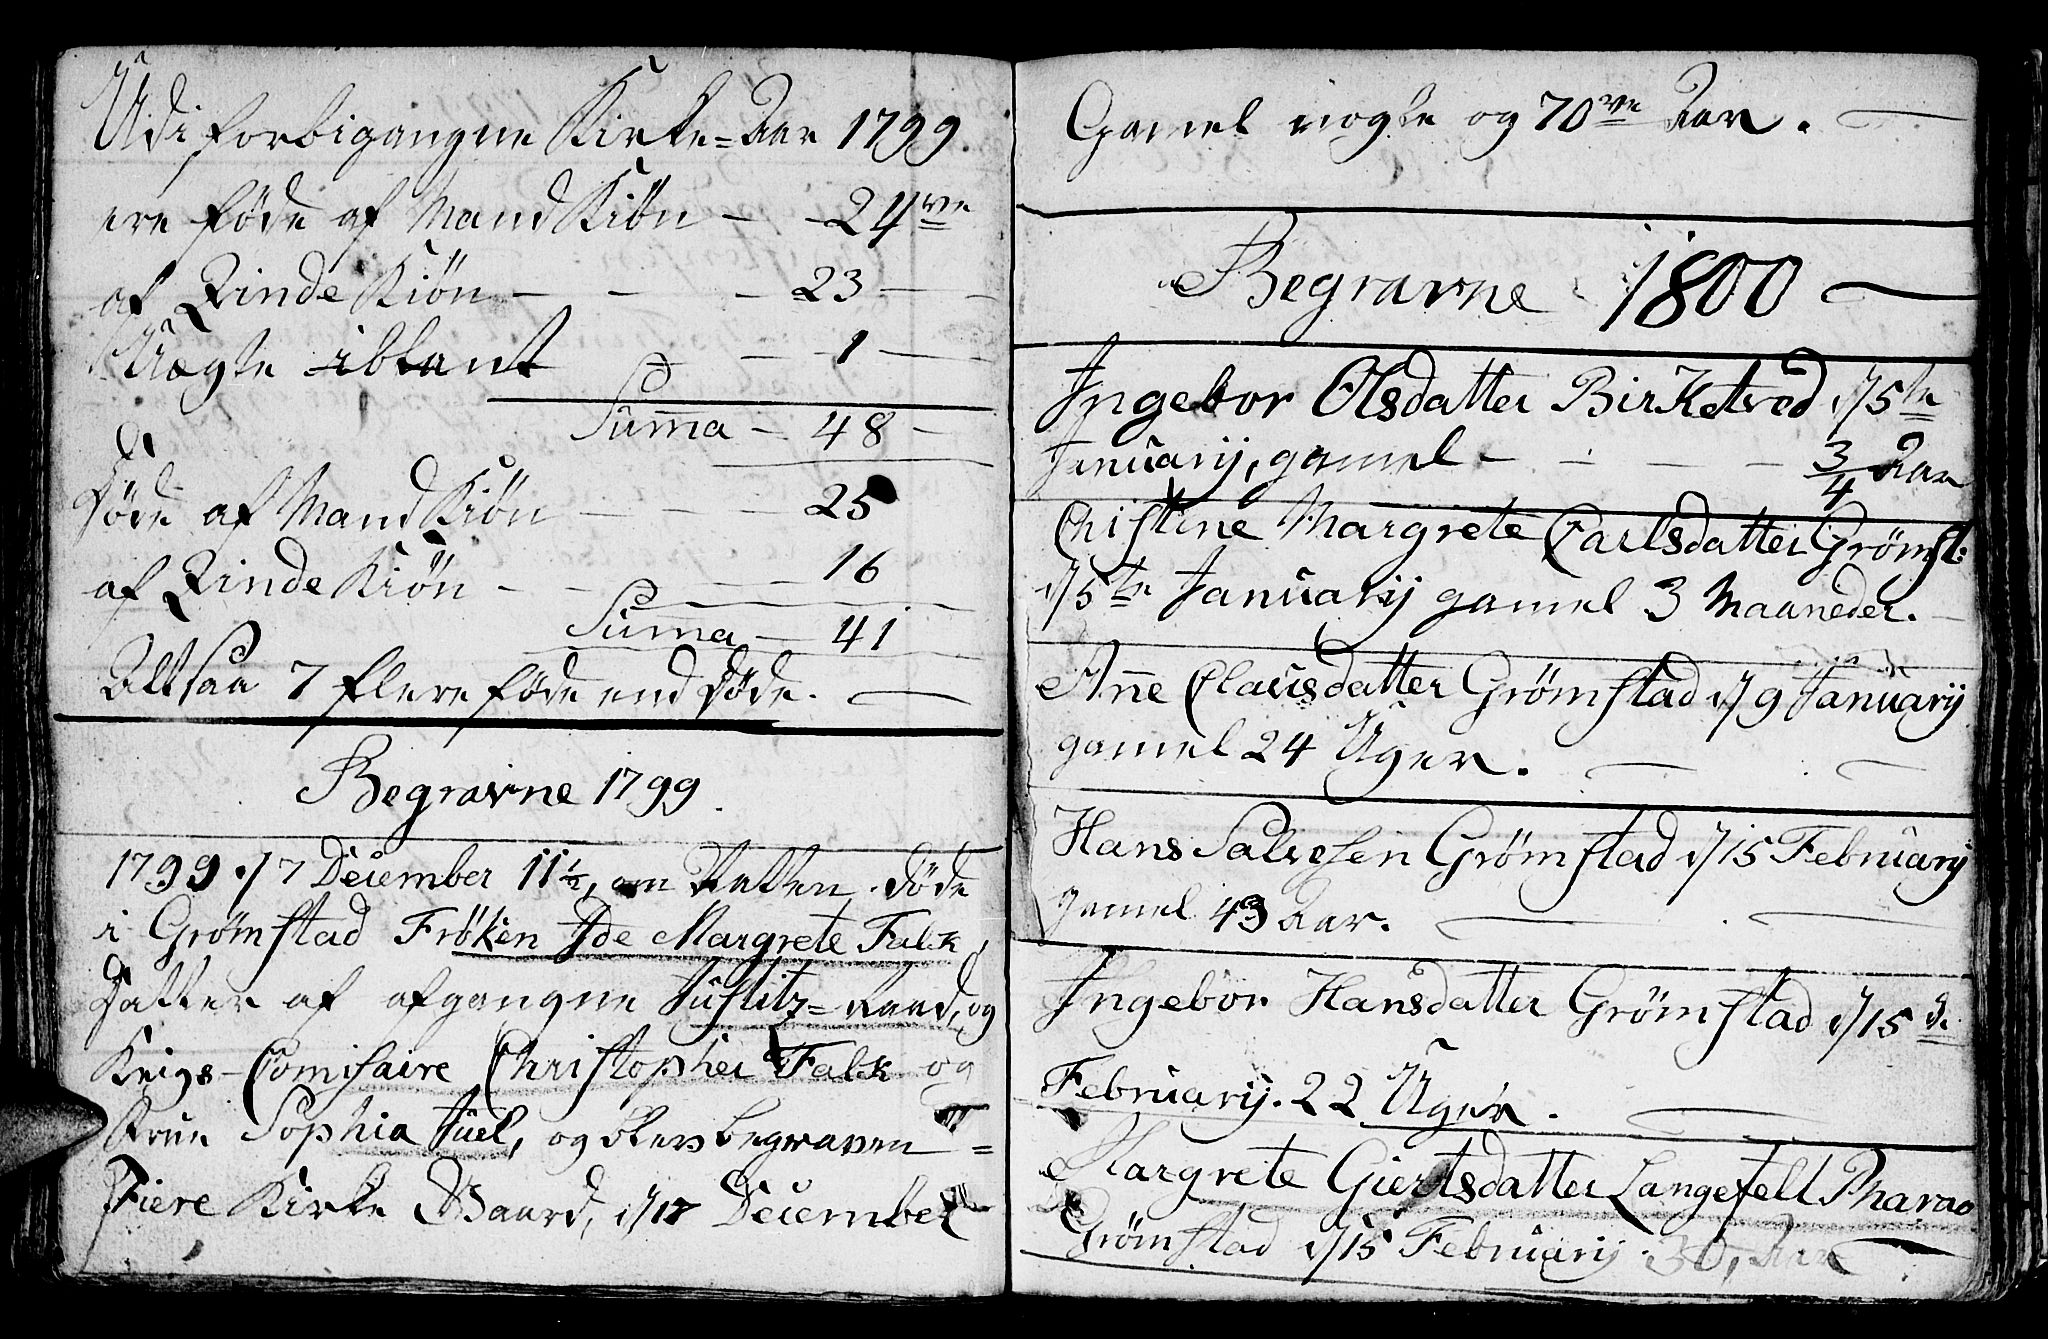 Udi forbigangne Kirke=Aar 1799
ere føde af Mand Kiön — 24ve
af Qvinde Kiön — — — 23 —
Uægte iblant — 1 —
Suma — 48 —
Døde af Mand Kiön — — — 25
af Qvinde Kiön — — — 16
Suma — 41
Altsaa 7 flere føde end døde. —
Begravne 1799
1799. d/7 December 11½, om Natten døde
i Grømstad Frøken Ide Margrete Falk,
Datter af afgangne Justitz=Raad, og
Krigs-Comisaire Christopher Falk og
Frue Sophia Juel, og blev begraven
Fiere Kirke Gaard, d/17 December
Gamel nogle og 70ve Aar. —
Begravne 1800 —
Ingebor Olsdatter Birketved d/5te
Januarij, gamel — — — — 3/4 Aar
Christine Margrete Carlsdatter Grømst:
d/5te Januarij gamel 3 Maaneder. —
Anne Clausdatter Grømstad d/9 Januarij
gamel 24 Uger. — —
Hans Salvesen Grømstad d/15 Februarij
gamel 43 Aar. — —
Ingebor Hansdatter Grømstad d/15 d.
Februarij. 22 Uger. —
Margrete Giertsdatter Langefelt Pharao
Grømstad d/15 Februarij. 30, Aar —